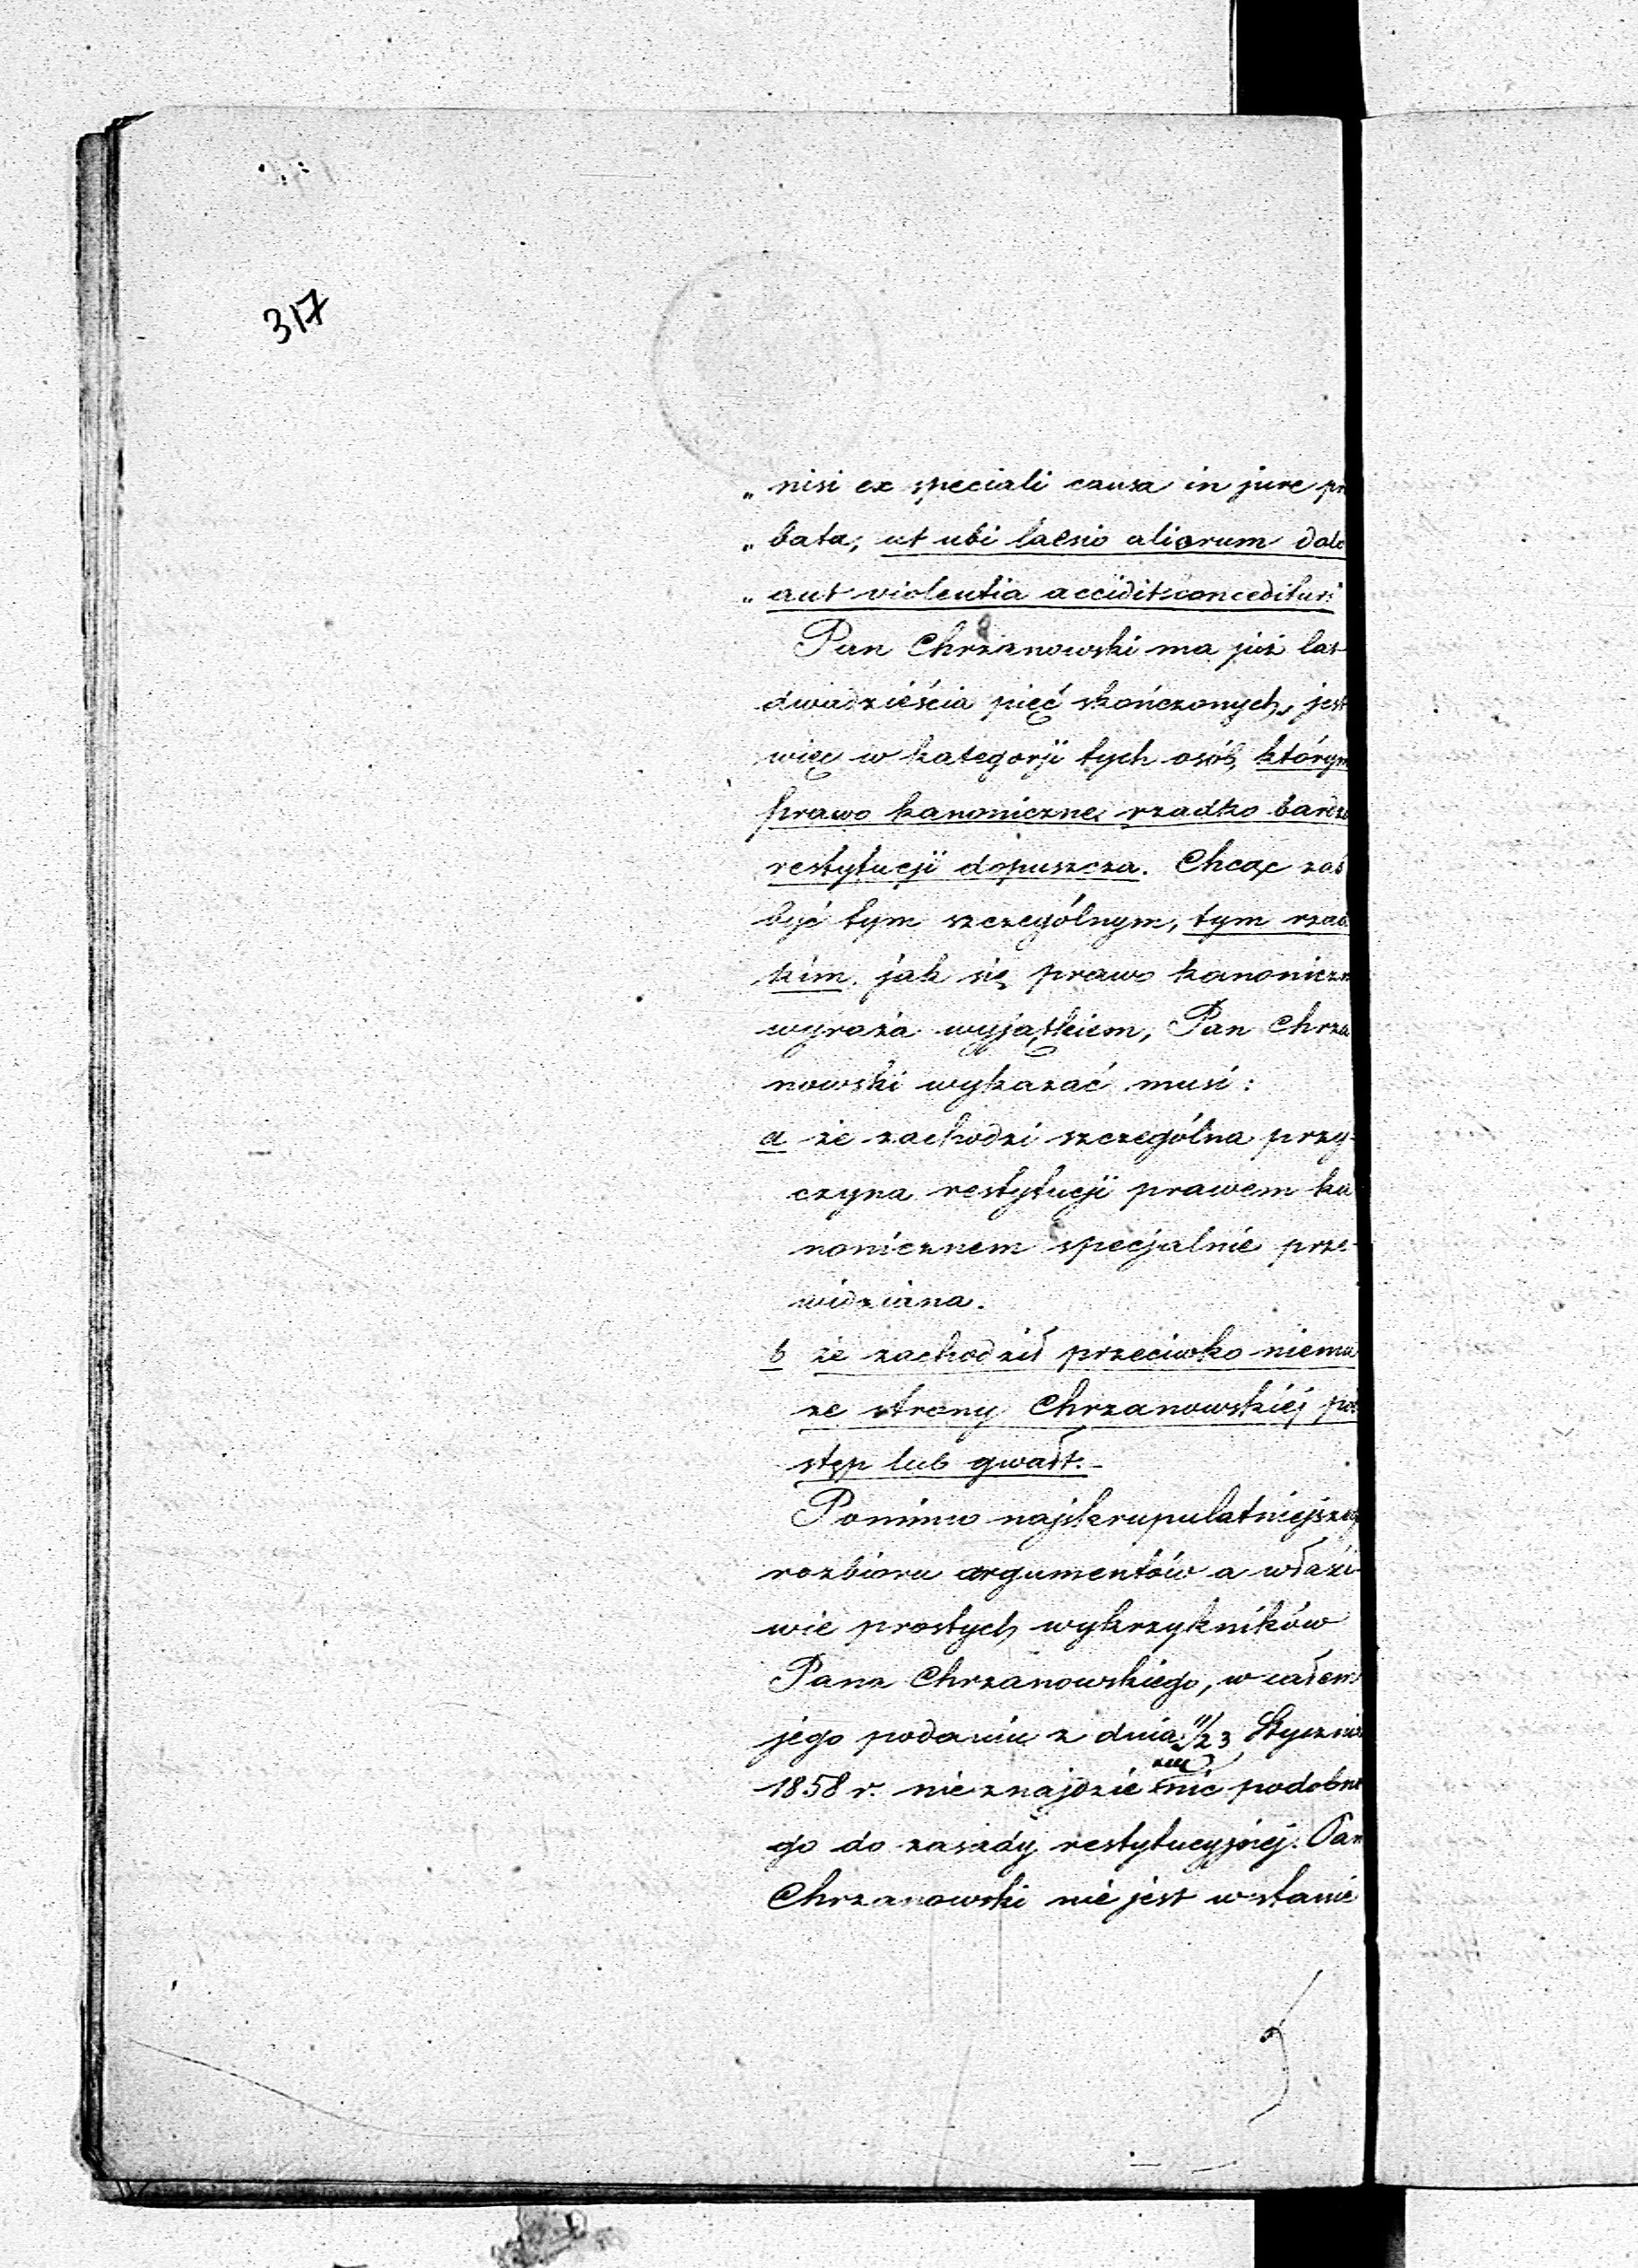 317
„ nisi ex speciali causa in jure pr
„ bata; ut ubi laesio aliorum dolo
„ aut violentia accidit conceditur."
Pan Chrzanowski ma już lat
dwadzieścia pięć skończonych, jest
więc w kategorji tych osób, którym
prawo kanoniczne rzadko bardzo
restytucji dopuszcza. Chcąc zaś
być tym szczególnym, tym rzad
kim, jak się prawo kanoniczn
wyraża wyjątkiem, Pan Chrza
nowski wykazać musi:
a że zachodzi szczególna przy-
czyna restytucji prawem ka
nonicznem specjalnie prze-
widziana.
b że zachodził przeciwko niemu
ze strony Chrzanowskiéj pod
stęp lub gwałt.-
Pomimo najskrupulatniejszego
rozbioru argumentów a właści
wie prostych wykrzykników
Pana Chrzanowskiego, w całem
jego podaniu z dnia 11/23 Stycznia
1858 r. nie znajdzie nic podobne
go do zasady restytucyjnej. Pan
Chrzanowski nie jest w stanie